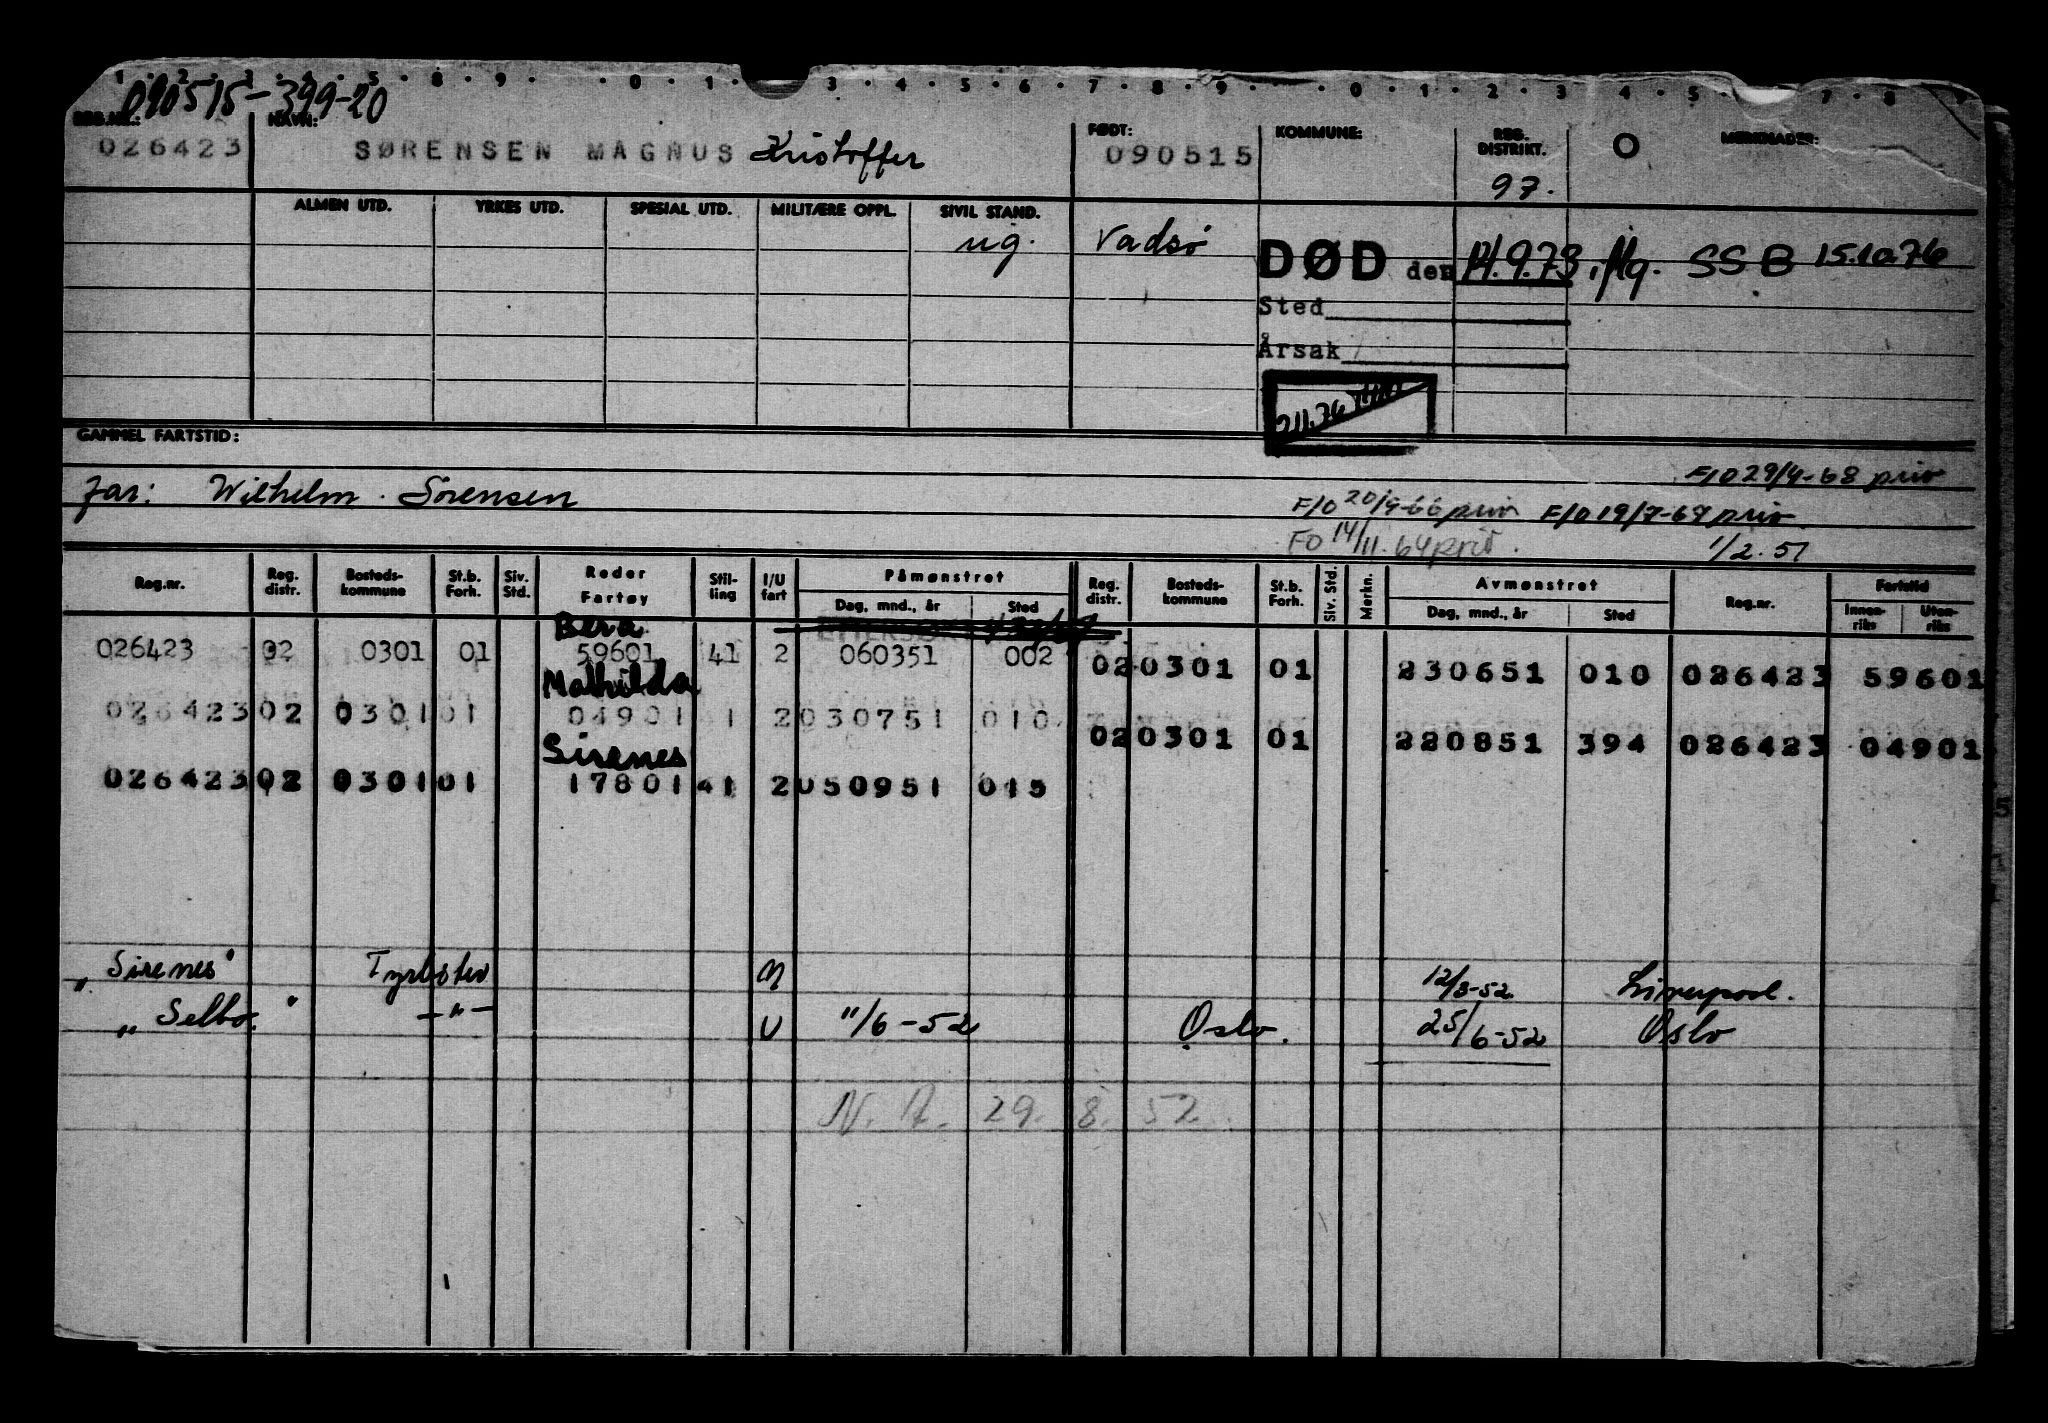 1 · 2 · 3 · 4 · 5 · 8 · 9 · · 0 · 1 · 3 · 4 · 5 · 6 · 7 · 8 · 9 · · 0 · 1 · 2 · 3 · 4 · 5 · 7 · 8 9
090515-399-20
REG.NR.: NAVN: FØDT: KOMMUNE: REG. DISTRIKT. O MERKNADER:
026423 SØRENSEN MAGNUS Kristoffer 090515 97.
ALMEN UTD. YRKES UTD. SPESIAL UTD. MILITÆRE OPPL. SIVIL STAND.
ug. Vadsø DØD den 14.9.73, flg. SSB 15.10.76
Sted
Årsak
GAMMEL FARTSTID:
F/O 29/4-68 priv
Far: Wilhelm Sørensen F/O 20/9-66 priv F/O 19/7-67 priv
FO 14/11.64 priv. 1/2.51
Reg.nr. Reg. distr. Bosteds-kommune St.b. Forh. Siv. Std. Reder Fartøy Stil-ling I/U fart Påmønstret Reg. distr. Bosteds-kommune St.b. Forh. Siv. Std. Merkn. Avmønstret Reg.nr. Fartstid
Dag, mnd., år Sted Dag, mnd., år Sted Innen-riks Uten-riks
Bera
026423 02 0301 01 59601 41 2 060351 002 02 0301 01 230651 010 026423 59601
Mathilda
026423 02 0301 01 04901 1 2 030751 010 02 0301 01 220851 394 026423 04901
Sirenes
026423 02 0301 01 17801 41 2 050951 015
"Sirenes" 12/3-52. Liverpool.
"Selbo." -"- U 11/6-52 Oslo. 25/6-52 Oslo
N.A. 29.8.52